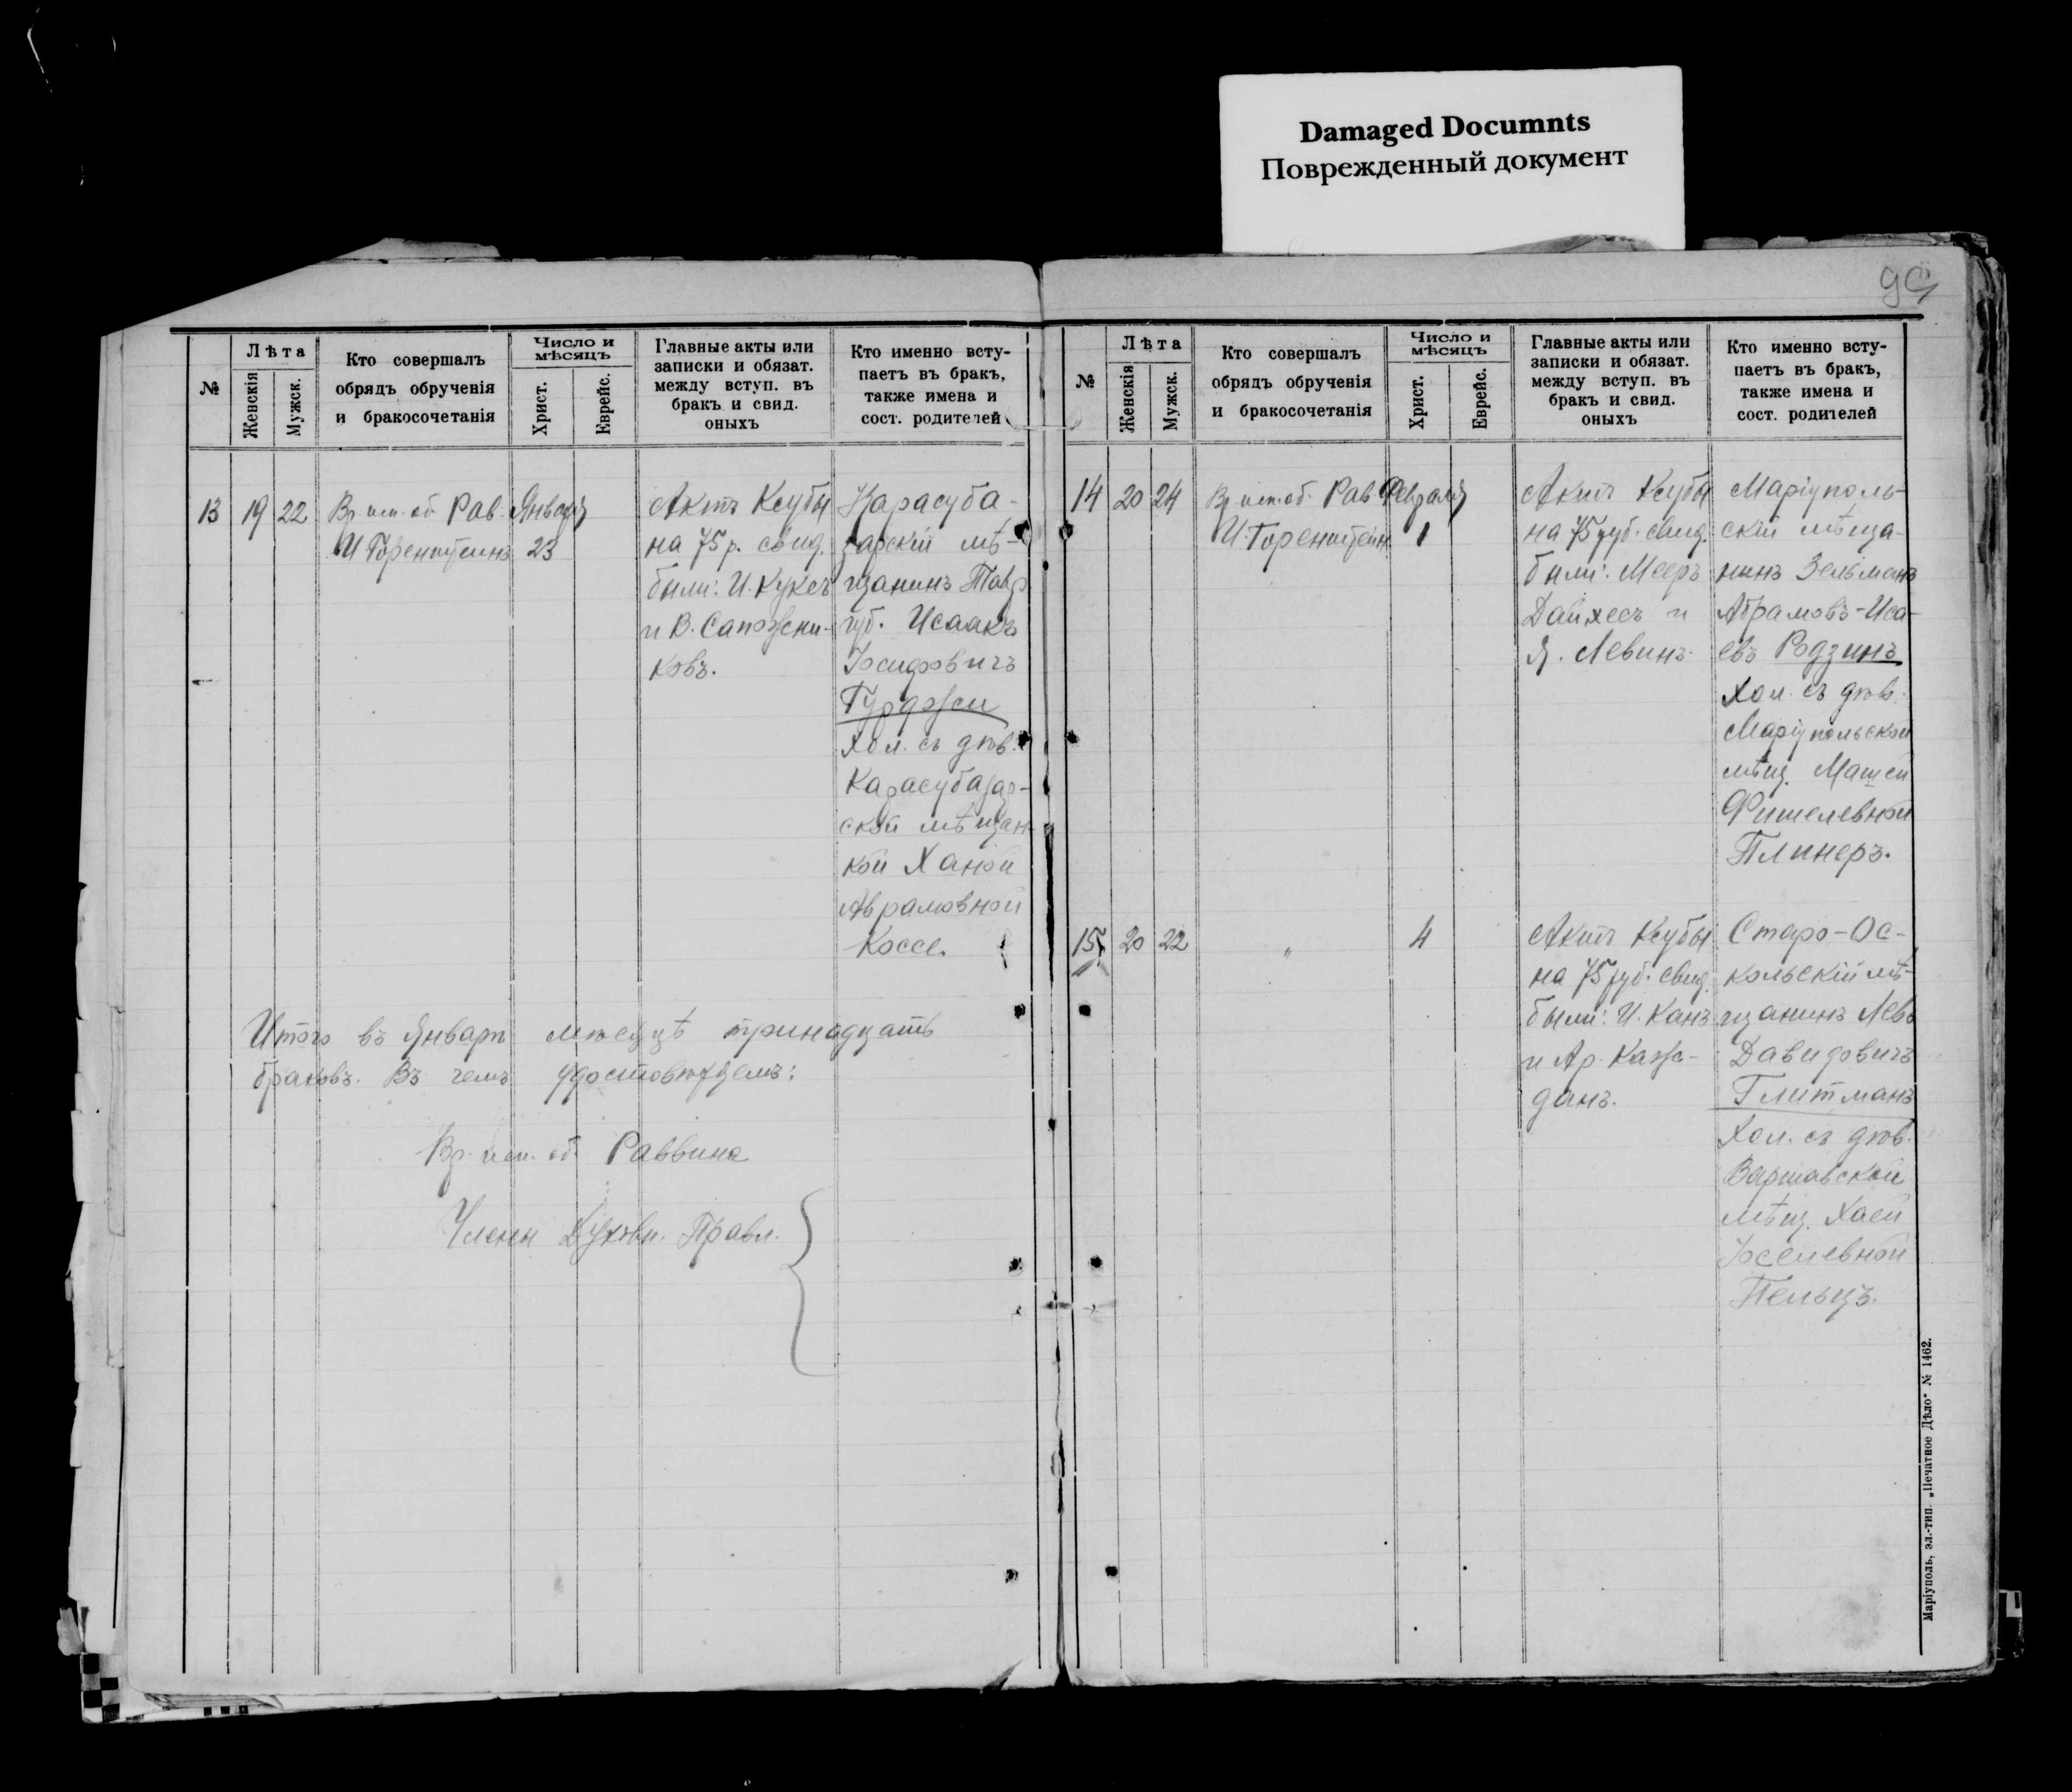 Damaged Documnts
Поврежденный документ
№
Лѣта
Женскія
Мужск.
Кто совершалъ
обрядъ обрученія
и бракосочетанія
Число и
мѣсяцъ
Христ.
Еврейс.
Главные акты или
записки и обязат.
между вступ. въ
бракъ и свид.
оныхъ
Кто именно всту-
паетъ въ бракъ,
также имена и
сост. родителей
13 19 22
Вр. исп. об. Рав.
И Горенштеинъ
Января
23
Актъ Ксубы
на 75 р. свид.
были: И. Куксъ
и В. Сапожни-
ковъ.
Карасуба-
зарскій мѣ-
щанинъ Тавр.
губ. Исаакъ
Іосифовичъ
Гурджи
Хол. съ дѣв.
Карасубазар-
ской мѣщан-
кой Ханой
Аврамовной
Коссе.
Итого въ Январѣ мѣсяцѣ тринадцать
браковъ. Въ чемъ удостовѣряемъ:
Вр. исп. об. Раввина
Члены Духовн. Правл.
№
Лѣта
Женскія
Мужск.
Кто совершалъ
обрядъ обрученія
и бракосочетанія
Число и
мѣсяцъ
Христ.
Еврейс.
Главные акты или
записки и обязат.
между вступ. въ
бракъ и свид.
оныхъ
Кто именно всту-
паетъ въ бракъ,
также имена и
сост. родителей
14 20 24
Вр. исп. об. Рав.
И. Горенштейн
Февраля
1
Актъ Ксубы
на 75 руб. свид.
были: Мееръ
Дайхесъ и
Я. Левинъ.
Маріуполь-
скій мѣща-
нинъ Зельманъ
Абрамовъ-Иса-
евъ Родзинъ
Хол. съ дѣв.
Маріупольской
мѣщ. Машей
Фишелевной
Плинеръ.
15. 20 22
"
4
Актъ Ксубы
на 75 руб. свид.
были: И. Канъ
и Ар. Каж-
данъ.
Старо-Ос-
кольскій мѣ-
щанинъ Левъ
Давидовичъ
Глитманъ
Хол. съ дѣв.
Варшавской
мѣщ. Хаей
Іоселевной
Пельцъ.
Маріуполь, эл.-тип. „Печатное Дѣло“ № 1462.